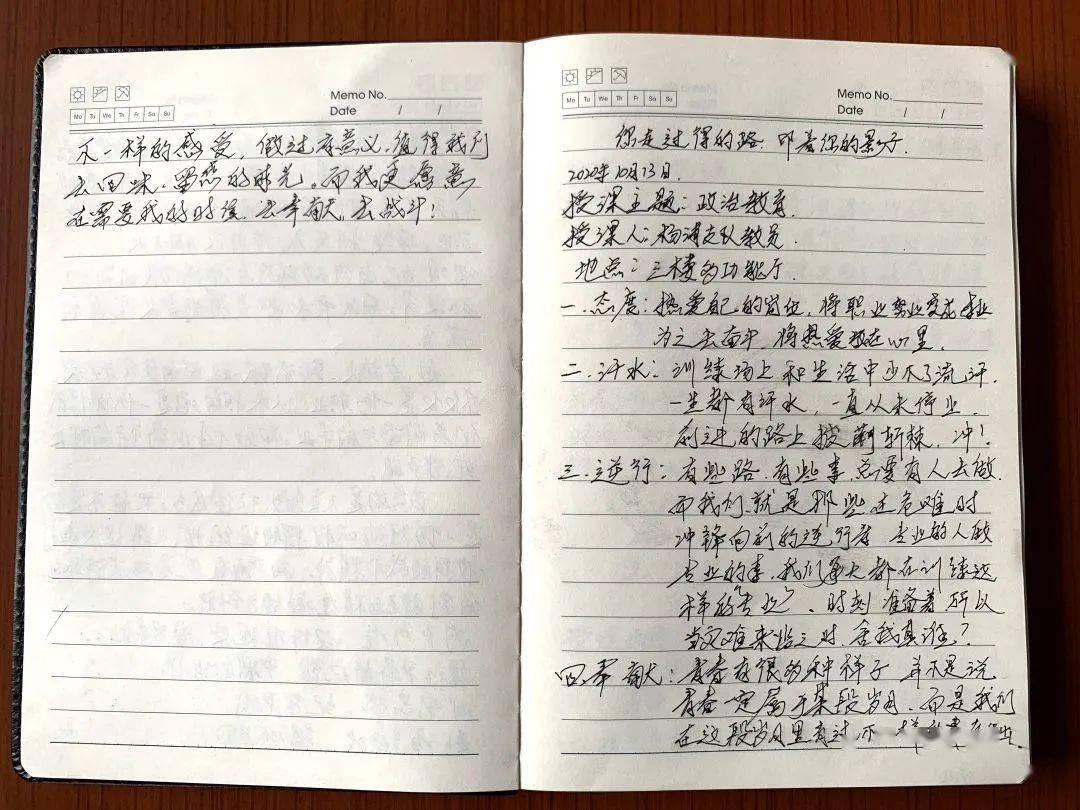 Memo No.
Mo Tu We Th Fr Sa Su
Date / /
不一样的感受,做过有意义,值得我们
去回味,留恋的时光。而我更愿意
在需要我的时候,去奉献,去战斗!
Memo No.
Mo Tu We Th Fr Sa Su
Date / /
你走过得的路,印着你的影子.
2020年10月13日.
授课主题:政治教育.
授课人:杨浦支队教员.
地点:三楼多功能厅.
一.态度:热爱自己的岗位,将职业当成事业
为之去奋斗,将热爱放在心里.
二.汗水:训练场上和生活中少不了流汗.
一生都有汗水,一直从未停止.
前进的路上披荆斩棘,冲!
三.逆行:有些路,有些事,总要有人去做.
而我们就是那些在危难时
冲锋向前的逆行者,专业的人做
专业的事,我们每天都在训练这
样的"专业",时刻准备着,所以
当灾难来临之时,舍我其谁?
四.奉献:青春有很多种样子,并不是说
青春一定属于某段岁月,而是我们
在这段岁月里有过不